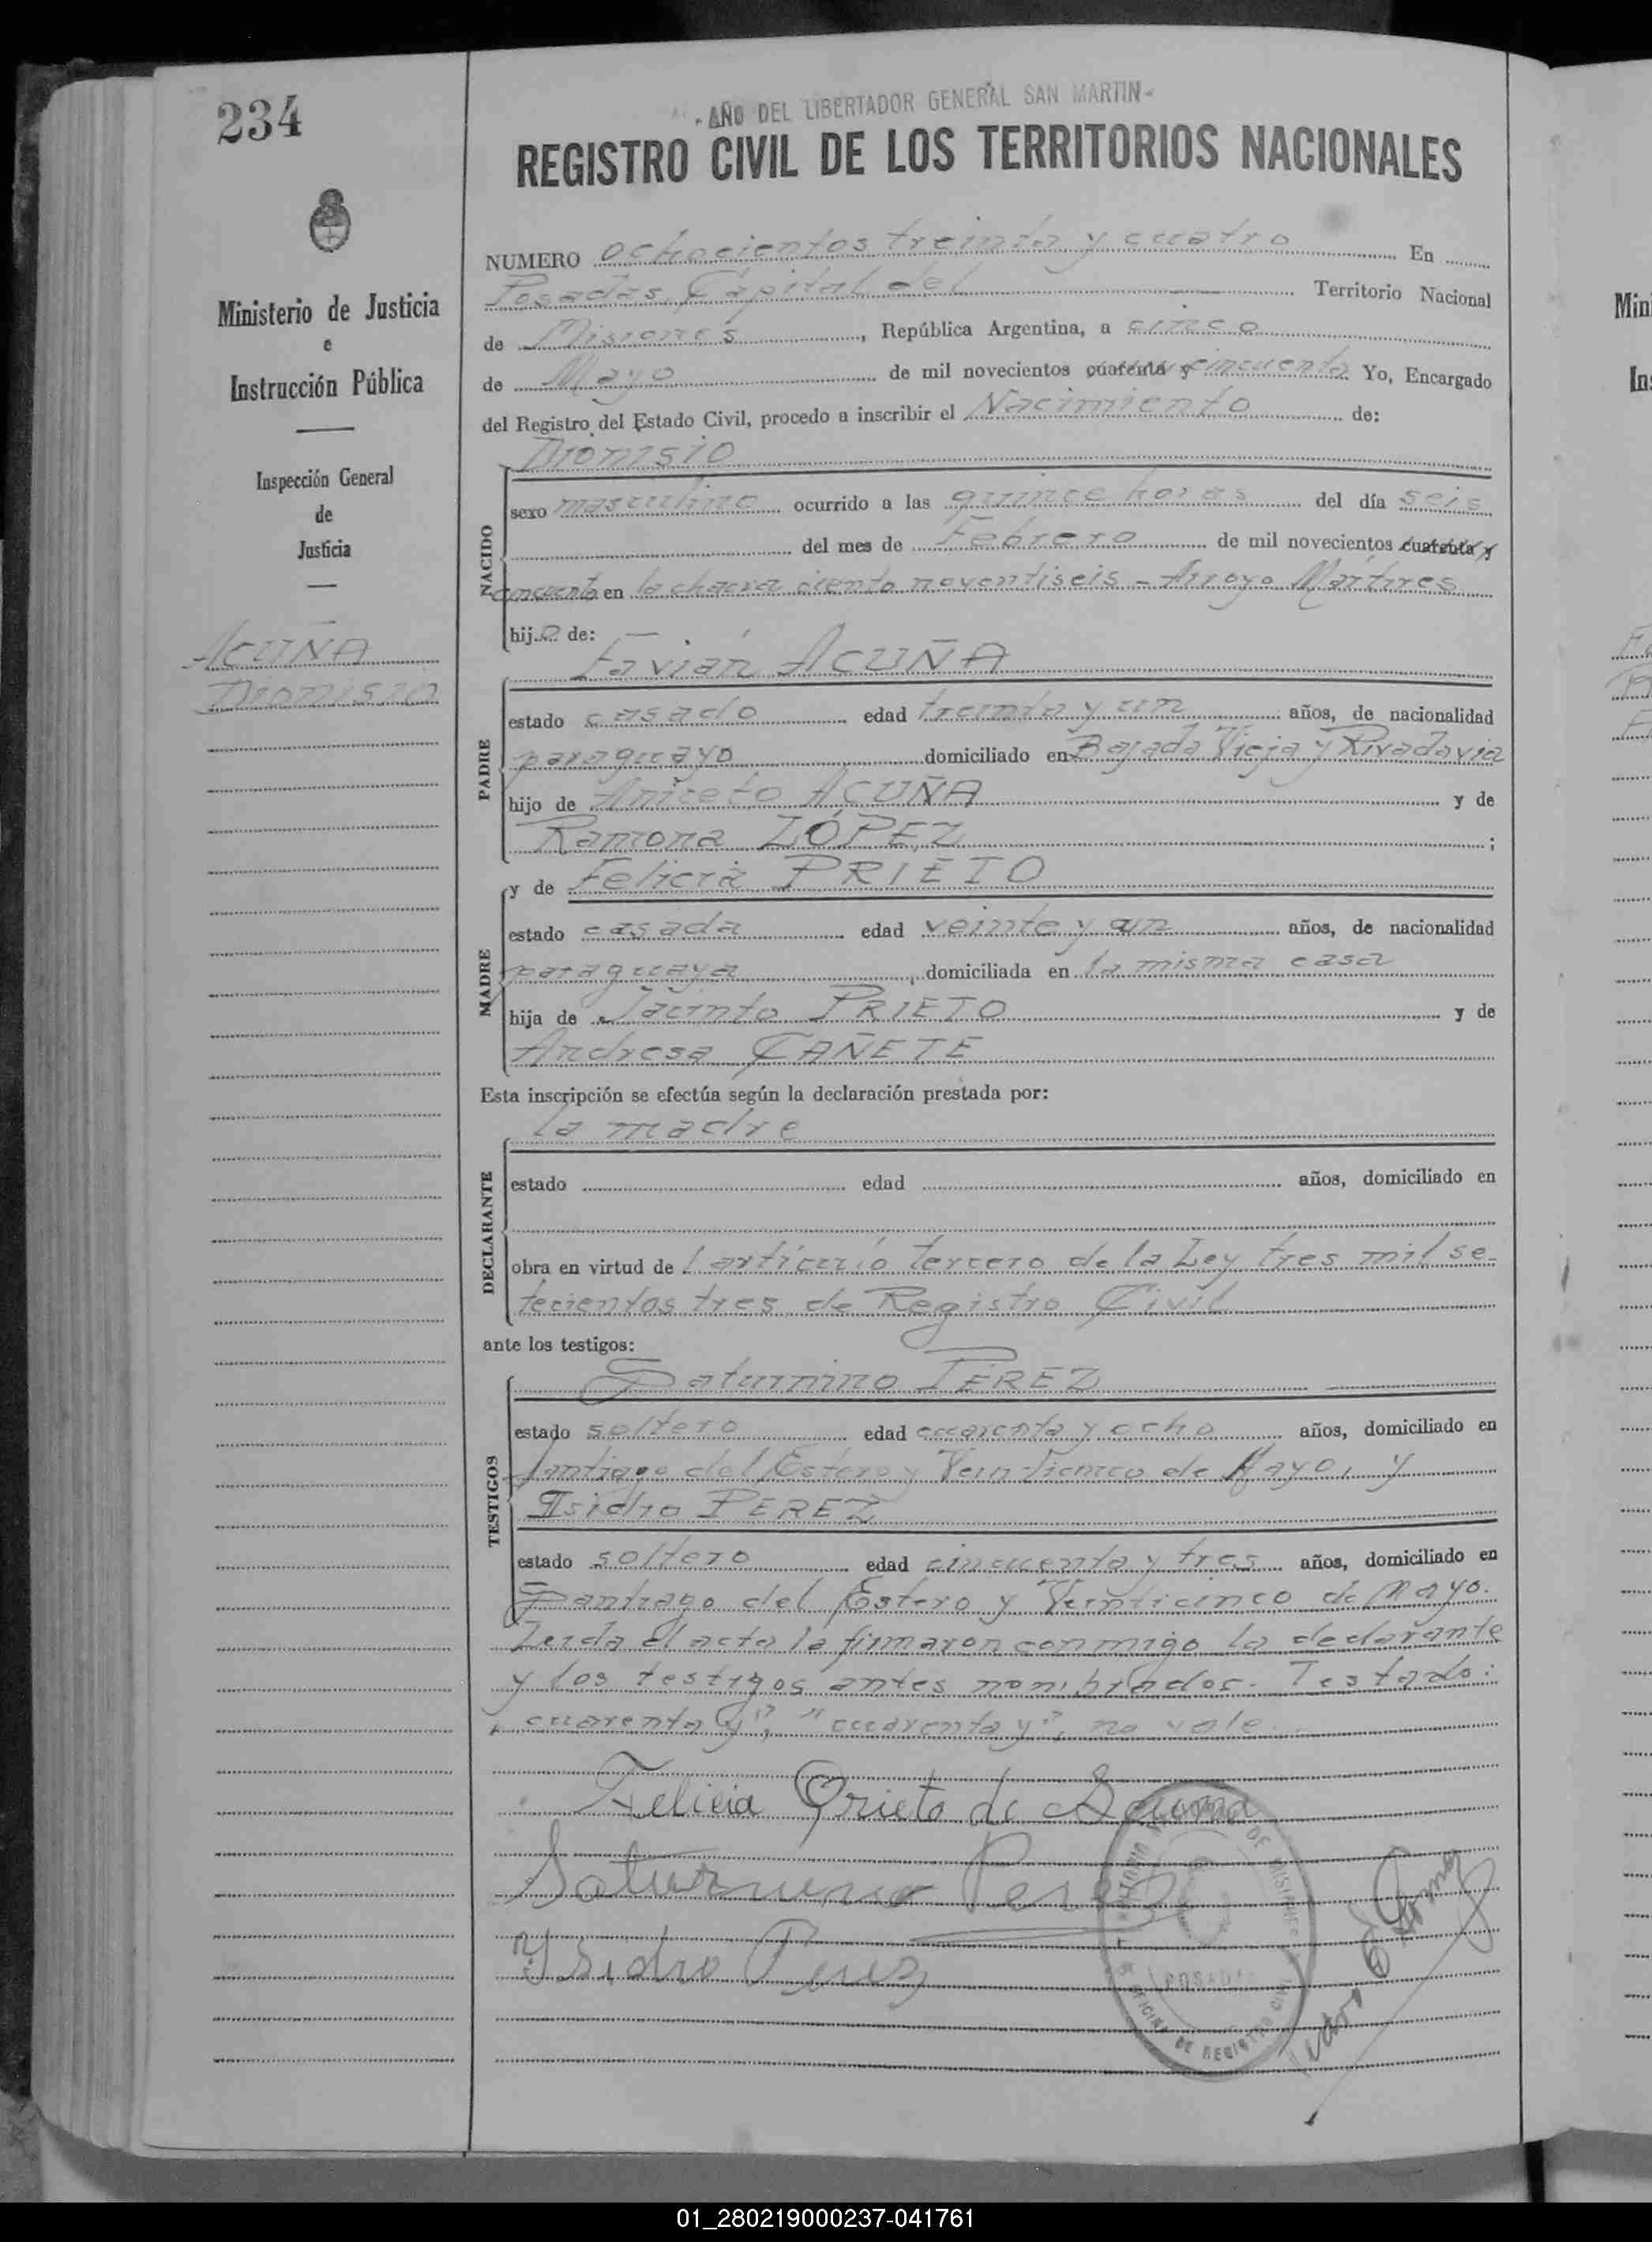 234
- AÑO DEL LIBERTADOR GENERAL SAN MARTIN -
REGISTRO CIVIL DE LOS TERRITORIOS NACIONALES
Ministerio de Justicia
e
Instrucción Pública
Inspección General
de
Justicia
ACUÑA
Dionisio
NUMERO ochocientos treinta y cuatro En
Posadas, Capital del Territorio Nacional
de Misiones, República Argentina, a cinco
de Mayo de mil novecientos cuarenta y cincuenta Yo, Encargado
del Registro del Estado Civil, procedo a inscribir el Nacimiento de:
Dionisio
NACIDO
sexo masculino ocurrido a las quince horas del día seis
del mes de Febrero de mil novecientos cuarenta y
cincuenta en la chacra ciento noventiseis - Arroyo Mártires
hijo de:
Favián ACUÑA
PADRE
estado casado edad treinta y un años, de nacionalidad
paraguayo domiciliado en Bajada Vieja y Rivadavia
hijo de Aniceto ACUÑA y de
Ramona LÓPEZ ;
y de Felicia PRIETO
MADRE
estado casada edad veinte y un años, de nacionalidad
paraguaya, domiciliada en la misma casa
hija de Jacinto PRIETO y de
Andresa CAÑETE
Esta inscripción se efectúa según la declaración prestada por:
la madre
DECLARANTE
estado edad años, domiciliado en
obra en virtud de l artículo tercero de la Ley tres mil se-
tecientos tres de Registro Civil
ante los testigos:
Saturnino PÉREZ
TESTIGOS
estado soltero edad cuarenta y ocho años, domiciliado en
Santiago del Estero y Veinticinco de Mayo, y
Isidro PEREZ
estado soltero edad cincuenta y tres años, domiciliado en
Santiago del Estero y Veinticinco de Mayo.
Leida el acta la firmaron conmigo la declarante
y los testigos antes nombrados. Testado:
"cuarenta y", "cuarenta y", no vale.
Felicia Prieto de Acuña
Saturnino Perez
Ysidro Perez
POSADAS
OFICINA DE REGISTRO CIVIL
01_280219000237-041761